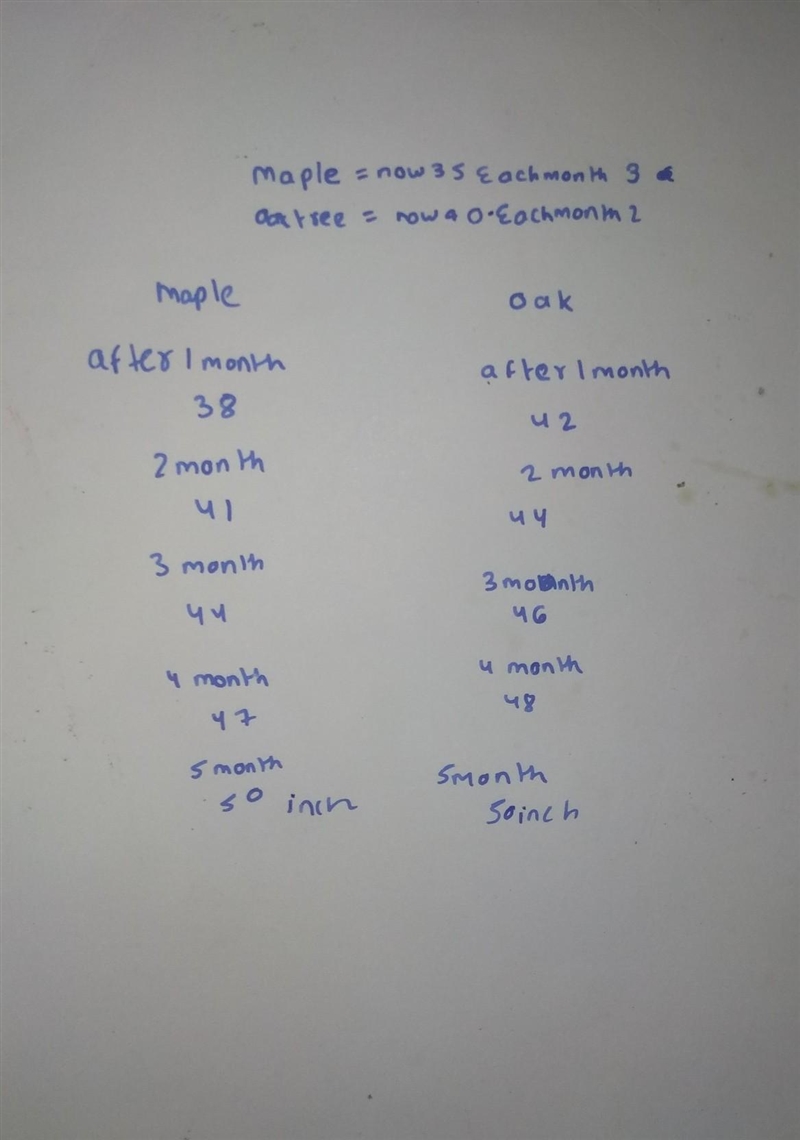 maple = now 35 Each month 3
oak tree = now 40. Each month 2
Maple
after 1 month
38
2 month
41
3 month
44
4 month
47
5 month
50 inch
oak
after 1 month
42
2 month
44
3 month
46
4 month
48
5 month
50 inch